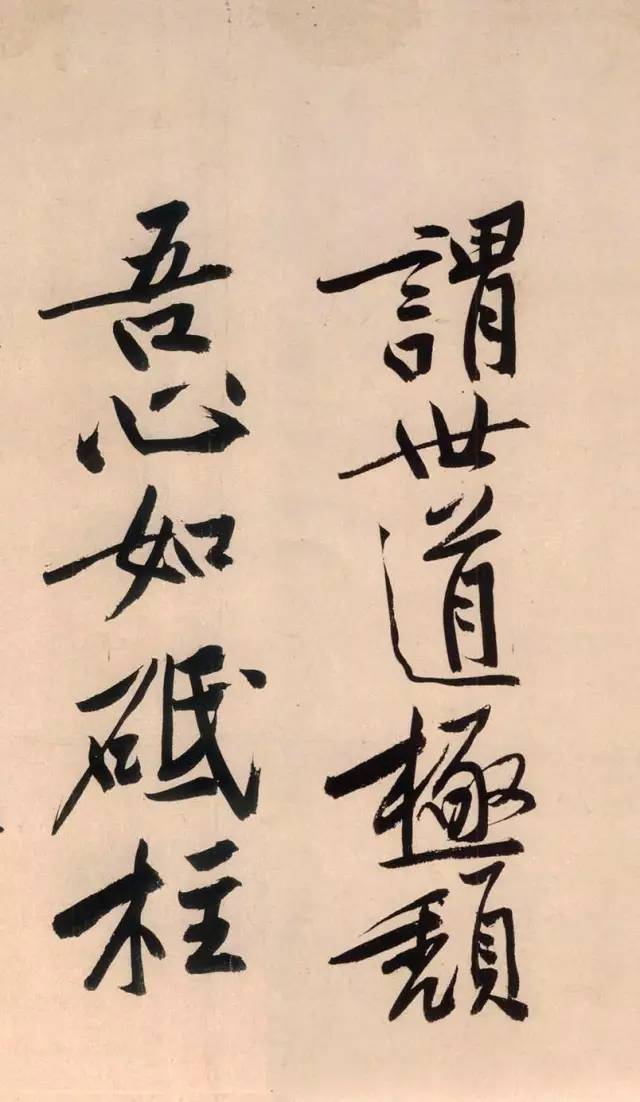 謂世道極頽
吾心如砥柱